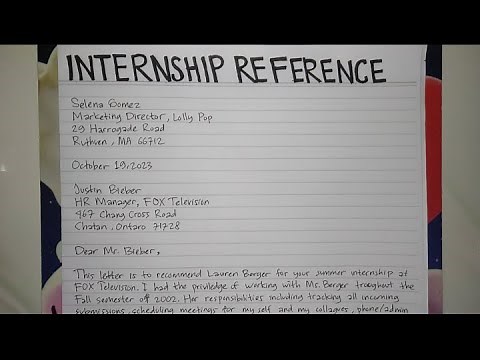 INTERNSHIP REFERENCE
Selena Gomez
Marketing Director, Lolly Pop
29 Harrogade Road
Ruthven, MA 66712
October 19, 2023
Justin Bieber
HR Manager, FOX Television
467 Chang Cross Road
Chatan, Ontaro 71728
Dear Mr. Bieber,
This letter is to recommend Lauren Berger for your summer internship at
FOX Television. I had the priviledge of working with Ms. Berger troughout the
Fall semester of 2002. Her responsibilities including tracking all incoming
submissions, scheduling meetings for my self and my collagues, phone/admin